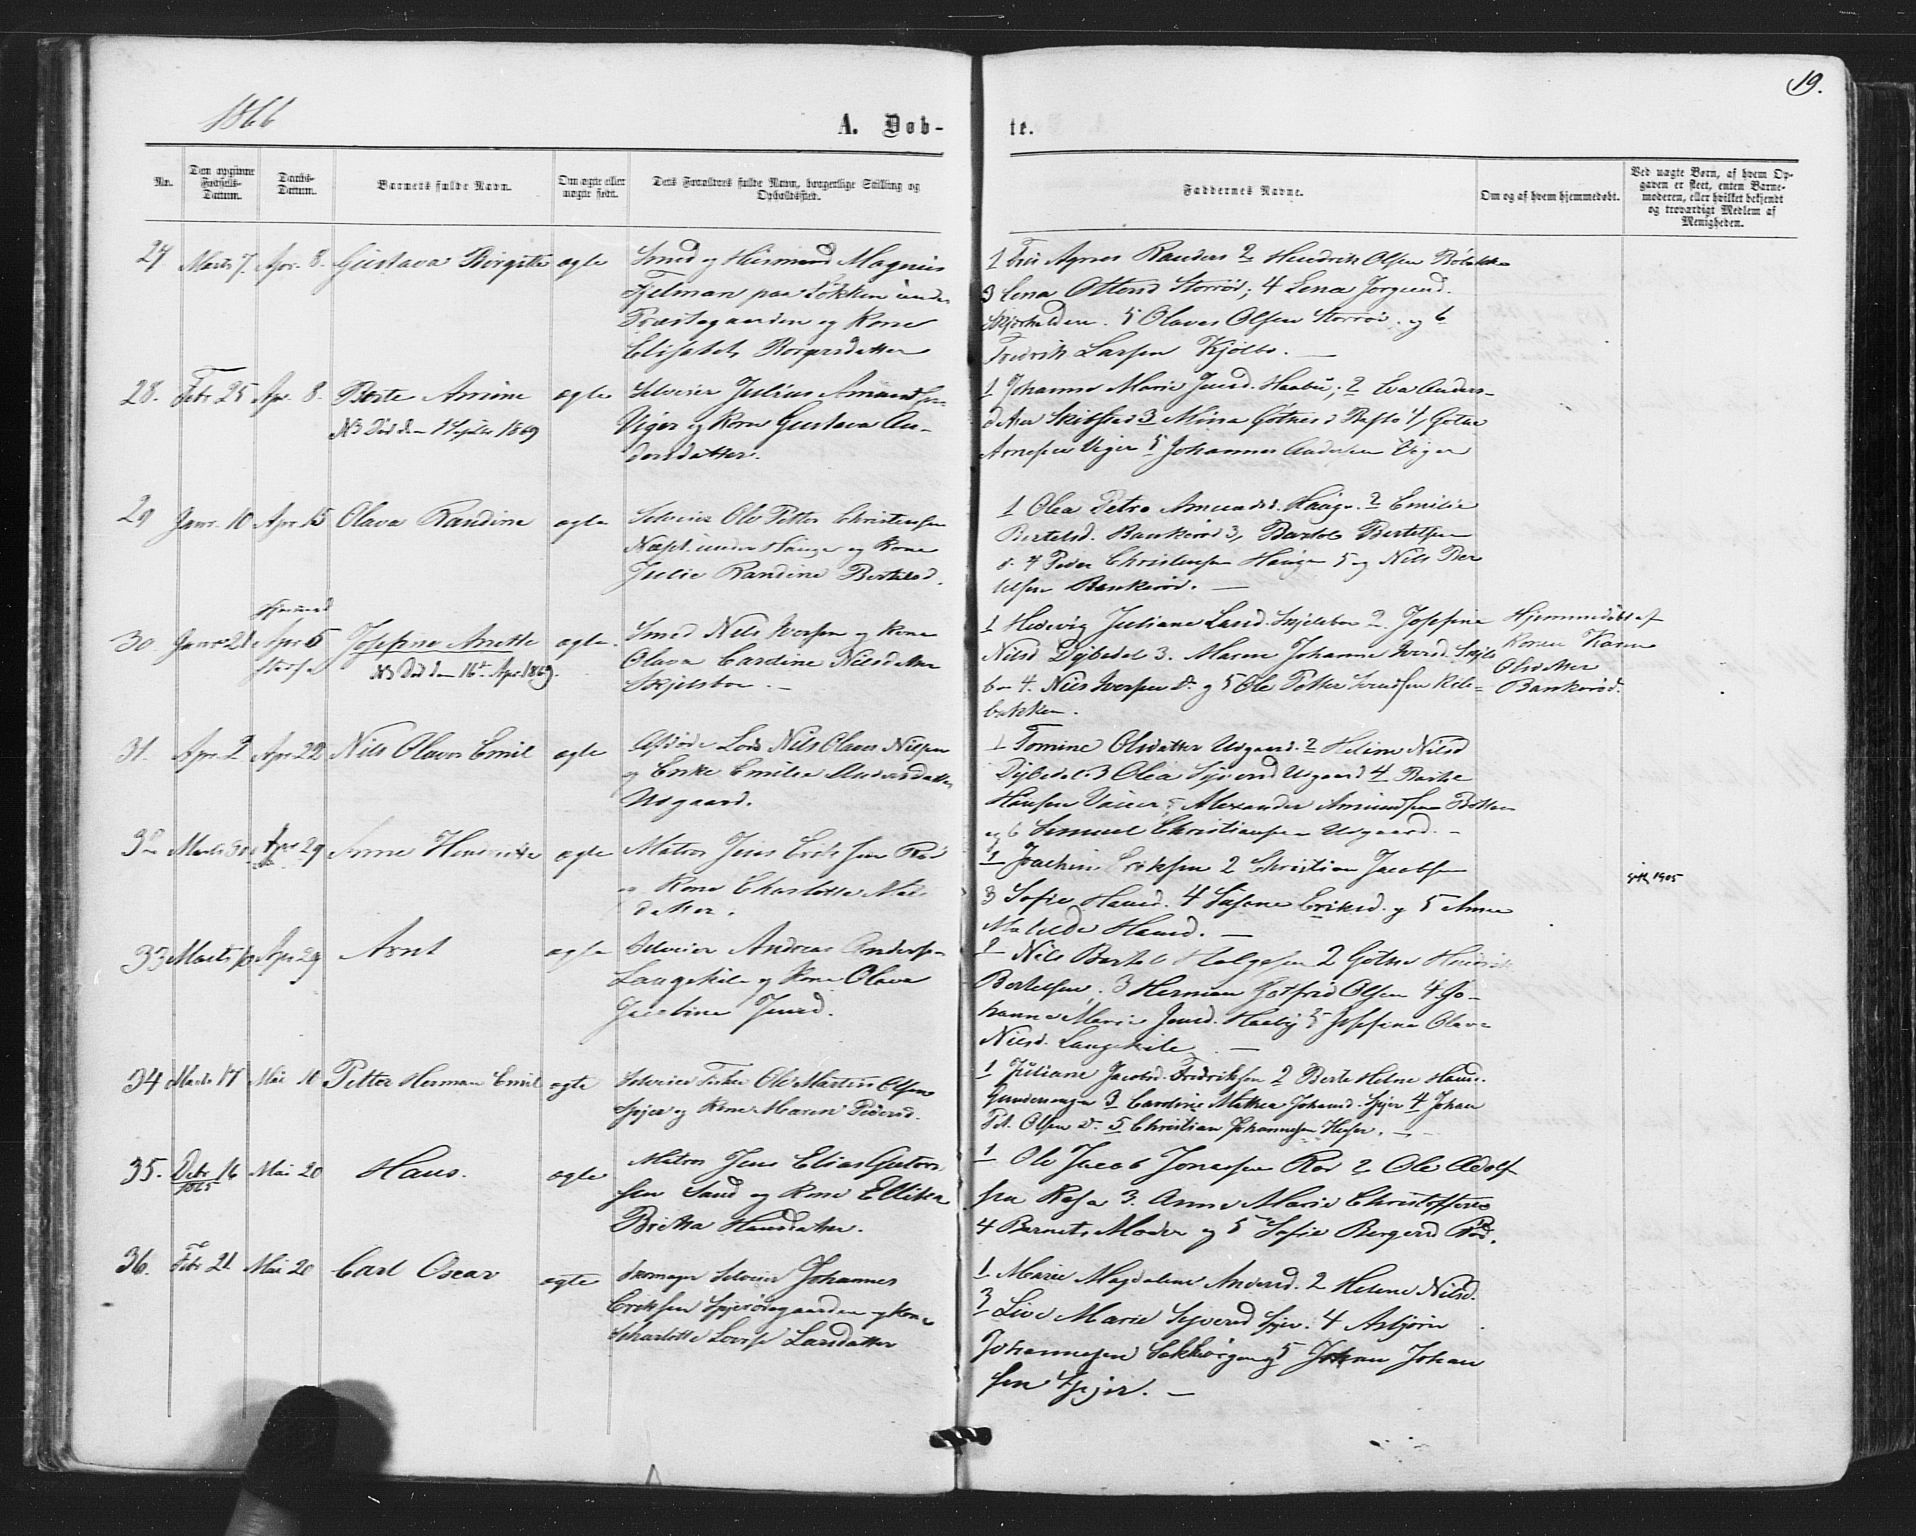 1866
A. Døb-
te.
19.
No.
Den opgivne Fødsels-Datum.
Daabs-Datum.
Barnets fulde Navn.
Om ægte eller uægte født.
Dets Forældres fulde Navn, borgerlige Stilling og Opholdssted.
Faddernes Navne.
Om og af hvem hjemmedøbt.
Ved uægte Børn, af hvem Op-
gaven er skeet, enten Barne-
moderen, eller hvilket bekjendt
og troværdigt Medlem af
Menigheden.
27 Marts 7. Apr. 8. Gustava Birgitte ægte Smed og Huusmand Magnus
Fjelman paa Løkken under
Præstegaarden og Kone
Elisabeth Borgersdatter
1 Agnes Randers 2 Hendrik Olsen
3 Lena Ottersd Storrød; 4 Lena Jorgensd.
Skjærhalden. 5 Olaves Olsen Storrød. og 6
Fredrik Larsen Kjølbo. —
28. Febr 25 Apr. 8. Berte Amine ægte Selveier Julius Amundsen
NB Død den 1 Septbr 1869
Viger og Kone Gustava An-
dersdatter.
1 Johanne Marie Jensd. Haabu; 2 Eva Anders-
datter Skibsted 3 Mina Gøthesd Basto 4 Gøthe
Arnesen Viger 5 Johannes Andersen Viger
29 Janr. 10 Apr. 15 Olava Randine ægte Selveier Ole Petter Christensen
Næset under Hauge og Kone
Julie Randine Bertelsd.
1 Olea Petra Amundsd. Hauge. 2 Emilie
Bertelsd. Bankerød 3, Bertel Bertelsen
4 Peder Christensen Hauge 5 og Nils Ber
telsen Bankerød. —
30. Janr 21 Apr 15 Josefine Anette ægte. Smed Nils Iversen og Kone
NB Død den 16de Apr. 1869.
Olava Cardine Nilsdatter
Skjelsbo. —
1 Hedevig Juliane Larsd. Skjelsbo 2 Josefine
Nilsd Dybedal 3. Maren Johanne Iversd. Skjels
bo 4. Nils Iversen Do. og 5 Ole Petter
bakken.
Hjemmedøbt af
Konen Karen
Olsdatter
Bankerød.
31. Apr. 2 Apr 22 Nils Olaves Emil ægte Afdøde Lods Nils Olaves Nilsen
og Enke Emilie Andersdatter
Utgaard.
1 Tomine Olsdatter Utgaard. 2 Helene Nilsd
Dybedal 3 Olea Syversd Utgaard 4 Berthe
Hansen 5 Alexander Amundsen
og 6 Samuel Christiansen Utgaard. —
32 Marts 30 Apr 29 Anne Hendrikke ægte Matros Jens Eriksen Rød
og Kone Charlotte
datter.
1 Joachim Eriksen 2 Christian Jacobsen
3 Sofie Hansd. 4 Susane Eriksd. og 5 Anne
Matilde Hansd. —
1905
33 Marts Apr 29 Arnt ægte Selveier Andreas Andersen
Langekile og Kone Olava
Jacobine Jensd.
1 Nils Bertel Helgesen 2 Gøthe Hendrik
Bertelsen. 3 Herman Gotfrid Olsen 4. Jo-
hanne Marie Jensd. Haabu 5 Josefine Olava
Nilsd. Langekile —
34 Marts 17 Mai 10 Petter Herman Emil ægte Selveier Fisker Ole Martin Olsen
Spjær og Kone Maren Pedersd.
1 Juliane Jacobsd. Fredriksen 2 Berte Helene Hansd.
3 Cardine Mathea Johansd. Spjær 4 Johan
Pet. Olsen Do. 5 Christian Johannesen Huser. —
35. Octbr 16 1865 Mai 20 Hans. ægte Matros Jens Elias Guttorm
sen Sand og Kone Ellika
Britta Hansdatter.
1 Ole Jacob Jonassen Rød 2 Ole Adolf
sen Røsa 3. Anne Marie Christoffersd
4 Barnets Moder og 5 Sofie Bergersd Rød.
36. Febr 21 Mai 20 Carl Oscar ægte Skomager Selveier Johannes
Eriksen Spjærødegaarden og Kone
Scharlotte Lovise Larsdatter
1 Marie Magdalene Andersd. 2 Helene Nilsd.
3 Live Marie Syversd Spjær. 4 Asbjørn
Johannesen og 5 Johan Johan
sen Spjær. —